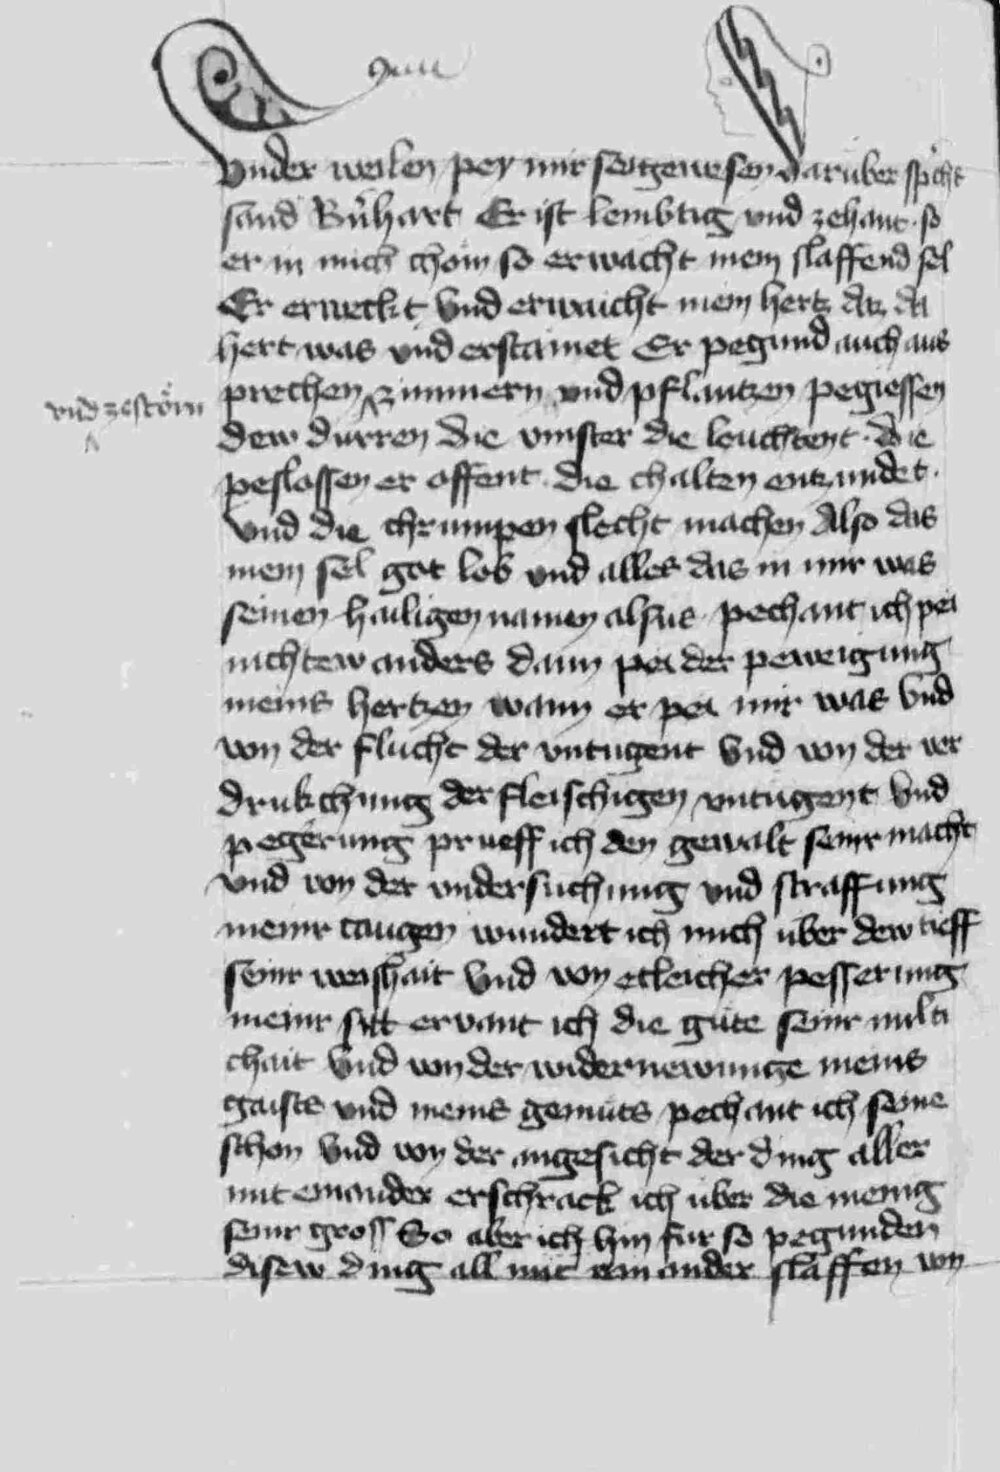 vnder weilen pey mir sei gewesen darüber spricht
sand Bernhart Er ist lembtig vnd zehant · so
er in mich chom so erwacht mein slaffend sel
Er erweckt vnd erwaicht mein hertz daz da
hert was vnd erstainet Er pegund auch aus
prechen zimmern vnd pflantzen pegiessen
vnd zestorn
dew durren die vinster die leuchtent · die
peslossen er offent · die chalten entzundet ·
vnd die chrumpen slecht machen Also das
mein sel got lob vnd alles das in mir was
seinen hailigen namen alsus · pechant ich pei
nichtew anders dann pei der peweigung
meins hertzen wann er pei mir was vnd
von der flucht der vntugent vnd von der ver
drukchung der fleischigen vntugent vnd
pegerung prueff ich den gewalt seinr macht
vnd von der vndersuchung vnd straffung
meinr taugen wundert ich mich über dew tieff
seinr weishait vnd von etleicher pesserung
meinr sitt ervant ich die güte seinr milti
chait vnd von der widernewunge meins
gaists vnd meins gemuts pechant ich seine
schon vnd von der angesicht der ding aller
mit einander erschrack ich über die menig
seinr gross So aber ich hin fur so pegunden
disew ding all mit ein ander slaffen von